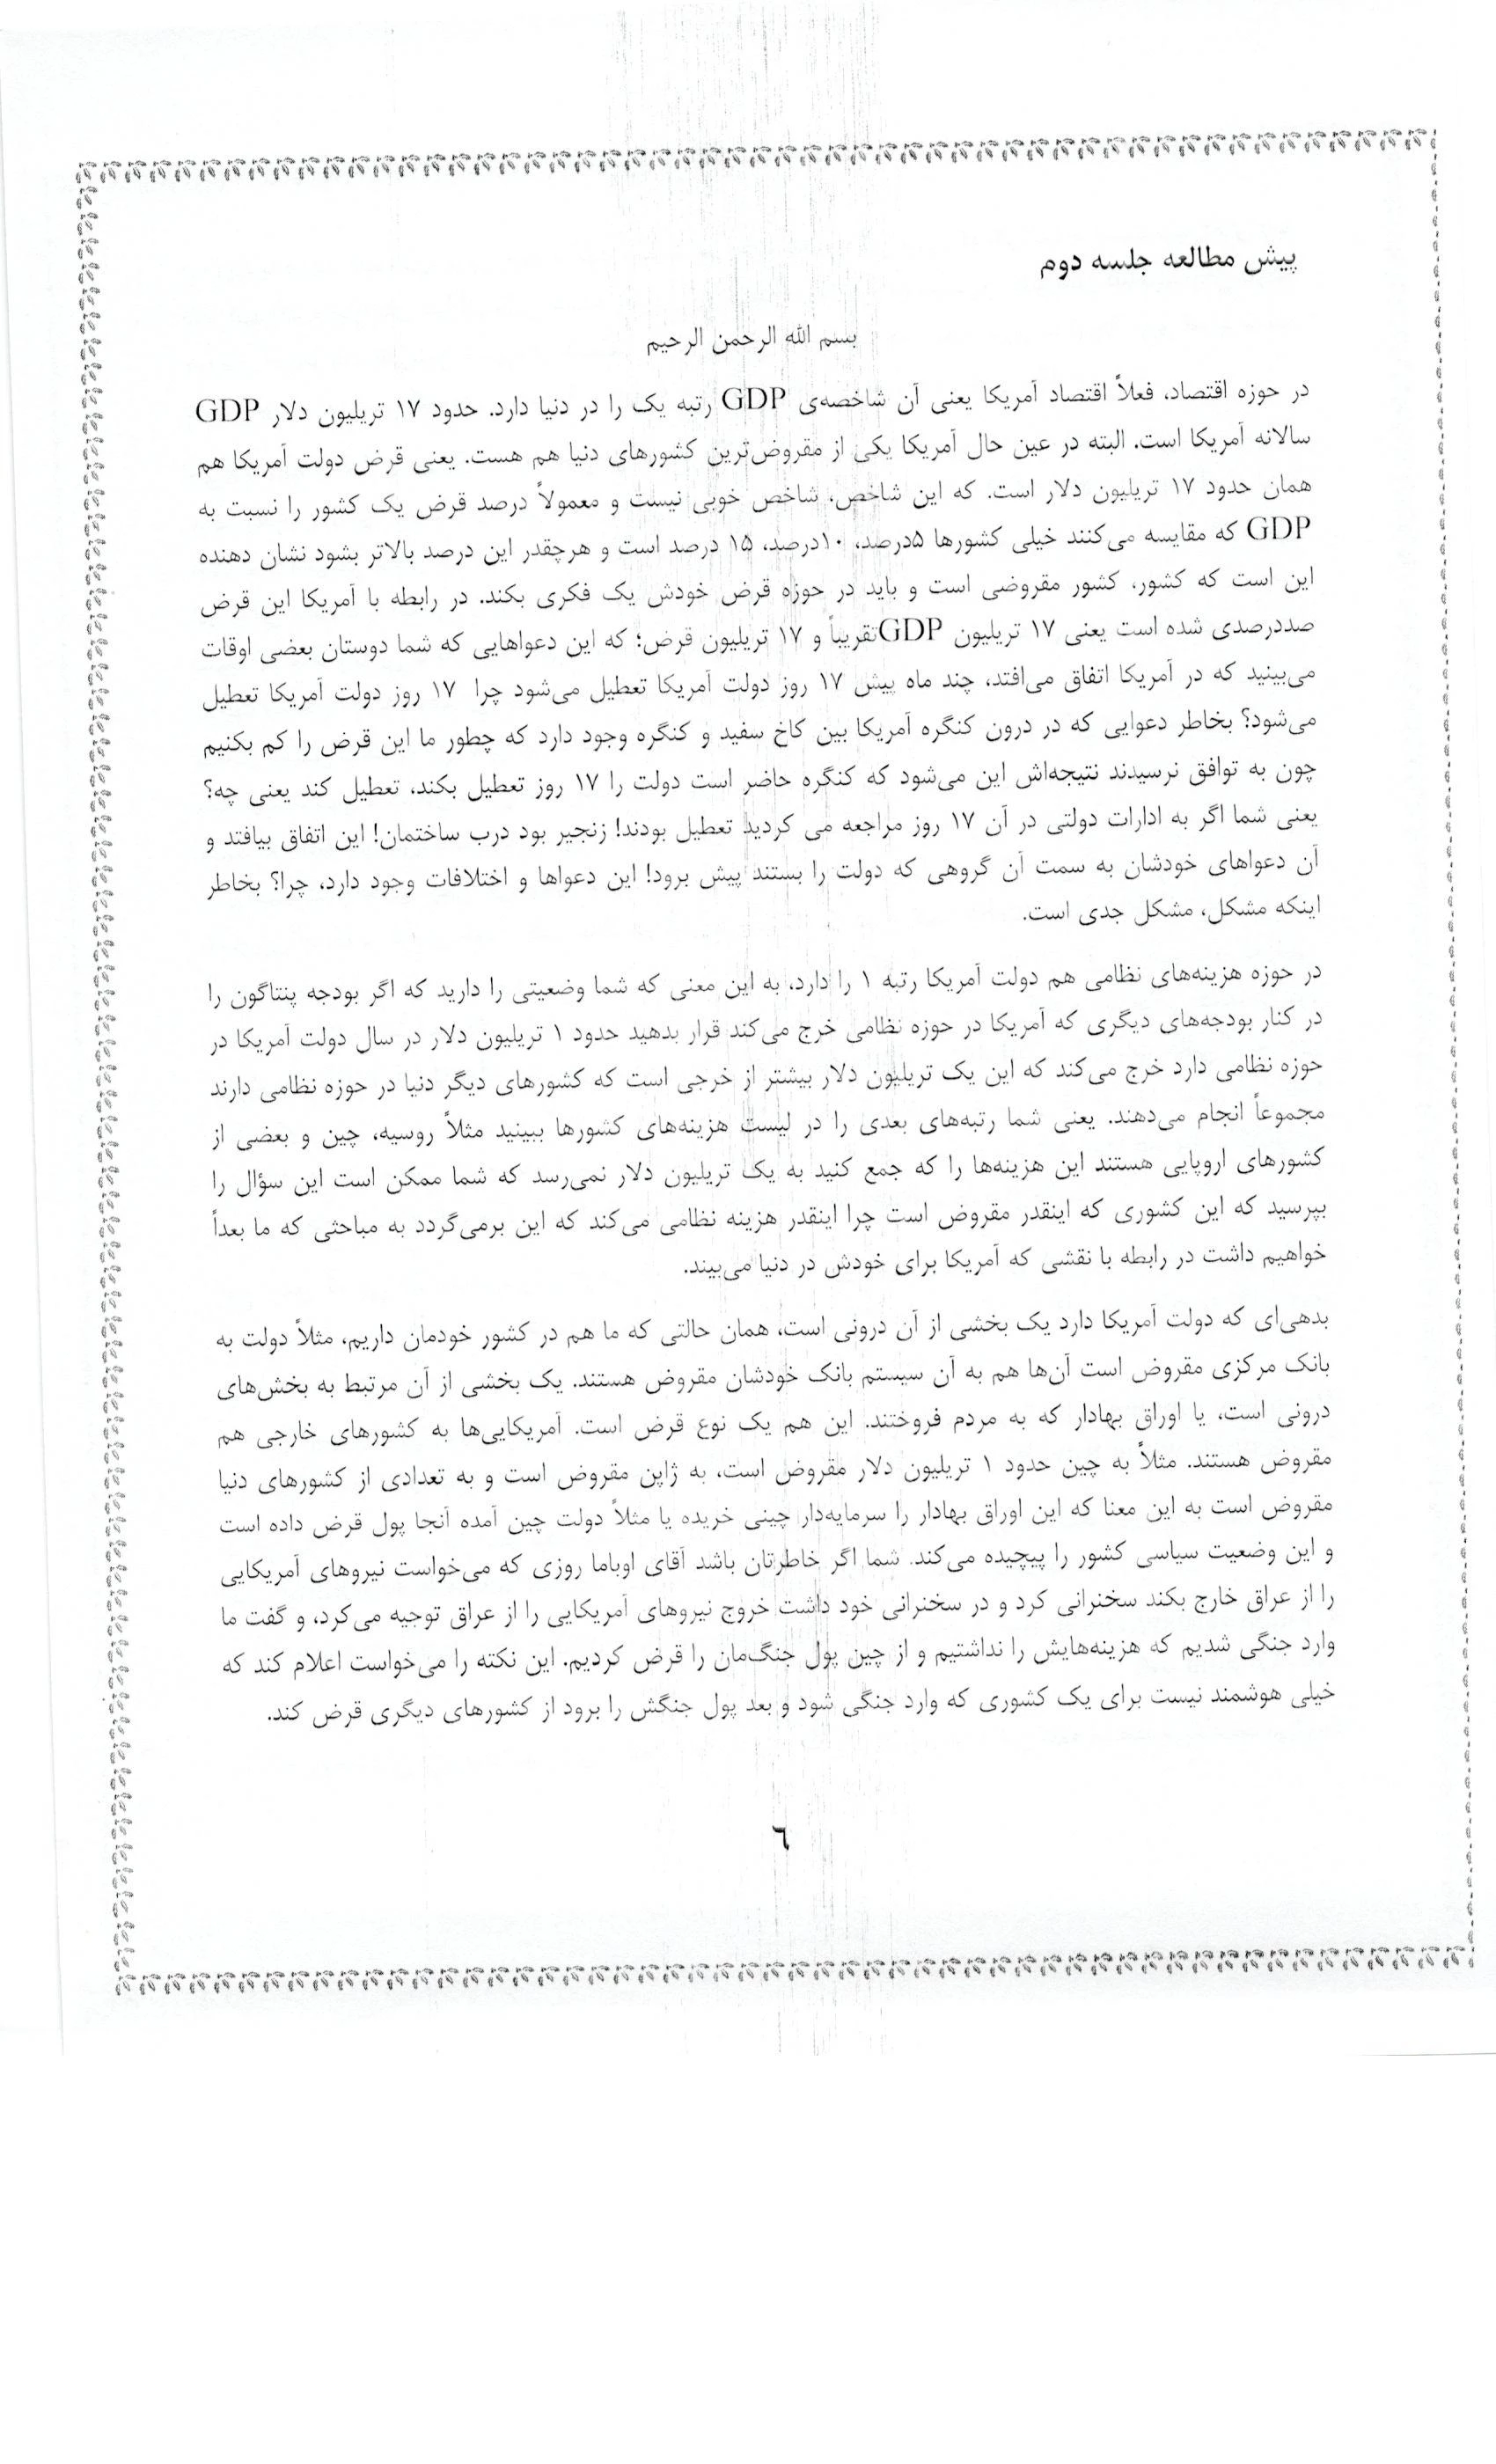 پیش مطالعه جلسه دوم
بسم الله الرحمن الرحیم
در حوزه اقتصاد، فعلاً اقتصاد آمریکا یعنی آن شاخصه‌ی GDP رتبه یک را در دنیا دارد. حدود ۱۷ تریلیون دلار GDP
سالانه آمریکا است. البته در عین حال آمریکا یکی از مقروض‌ترین کشورهای دنیا هم هست. یعنی قرض دولت آمریکا هم
همان حدود ۱۷ تریلیون دلار است. که این شاخص، شاخص خوبی نیست و معمولاً درصد قرض یک کشور را نسبت به
GDP که مقایسه می‌کنند خیلی کشورها ۵درصد، ۱۰درصد، ۱۵ درصد است و هرچقدر این درصد بالاتر بشود نشان دهنده
این است که کشور، کشور مقروضی است و باید در حوزه قرض خودش یک فکری بکند. در رابطه با آمریکا این قرض
صددرصدی شده است یعنی ۱۷ تریلیون GDPتقریباً و ۱۷ تریلیون قرض؛ که این دعواهایی که شما دوستان بعضی اوقات
می‌بینید که در آمریکا اتفاق می‌افتد، چند ماه پیش ۱۷ روز دولت آمریکا تعطیل می‌شود چرا ۱۷ روز دولت آمریکا تعطیل
می‌شود؟ بخاطر دعوایی که در درون کنگره آمریکا بین کاخ سفید و کنگره وجود دارد که چطور ما این قرض را کم بکنیم
چون به توافق نرسیدند نتیجه‌اش این می‌شود که کنگره حاضر است دولت را ۱۷ روز تعطیل بکند، تعطیل کند یعنی چه؟
یعنی شما اگر به ادارات دولتی در آن ۱۷ روز مراجعه می کردید تعطیل بودند! زنجیر بود درب ساختمان! این اتفاق بیافتد و
آن دعواهای خودشان به سمت آن گروهی که دولت را بستند پیش برود! این دعواها و اختلافات وجود دارد، چرا؟ بخاطر
اینکه مشکل، مشکل جدی است.
در حوزه هزینه‌های نظامی هم دولت آمریکا رتبه ۱ را دارد، به این معنی که شما وضعیتی را دارید که اگر بودجه پنتاگون را
در کنار بودجه‌های دیگری که آمریکا در حوزه نظامی خرج می‌کند قرار بدهید حدود ۱ تریلیون دلار در سال دولت آمریکا در
حوزه نظامی دارد خرج می‌کند که این یک تریلیون دلار بیشتر از خرجی است که کشورهای دیگر دنیا در حوزه نظامی دارند
مجموعاً انجام می‌دهند. یعنی شما رتبه‌های بعدی را در لیست هزینه‌های کشورها ببینید مثلاً روسیه، چین و بعضی از
کشورهای اروپایی هستند این هزینه‌ها را که جمع کنید به یک تریلیون دلار نمی‌رسد که شما ممکن است این سؤال را
بپرسید که این کشوری که اینقدر مقروض است چرا اینقدر هزینه نظامی می‌کند که این برمی‌گردد به مباحثی که ما بعداً
خواهیم داشت در رابطه با نقشی که آمریکا برای خودش در دنیا می‌بیند.
بدهی‌ای که دولت آمریکا دارد یک بخشی از آن درونی است، همان حالتی که ما هم در کشور خودمان داریم، مثلاً دولت به
بانک مرکزی مقروض است آن‌ها هم به آن سیستم بانک خودشان مقروض هستند. یک بخشی از آن مرتبط به بخش‌های
درونی است، یا اوراق بهادار که به مردم فروختند. این هم یک نوع قرض است. آمریکایی‌ها به کشورهای خارجی هم
مقروض هستند. مثلاً به چین حدود ۱ تریلیون دلار مقروض است، به ژاپن مقروض است و به تعدادی از کشورهای دنیا
مقروض است به این معنا که این اوراق بهادار را سرمایه‌دار چینی خریده یا مثلاً دولت چین آمده آنجا پول قرض داده است
و این وضعیت سیاسی کشور را پیچیده می‌کند. شما اگر خاطرتان باشد آقای اوباما روزی که می‌خواست نیروهای آمریکایی
را از عراق خارج بکند سخنرانی کرد و در سخنرانی خود داشت خروج نیروهای آمریکایی را از عراق توجیه می‌کرد، و گفت ما
وارد جنگی شدیم که هزینه‌هایش را نداشتیم و از چین پول جنگ‌مان را قرض کردیم. این نکته را می‌خواست اعلام کند که
خیلی هوشمند نیست برای یک کشوری که وارد جنگی شود و بعد پول جنگش را برود از کشورهای دیگری قرض کند.
٦